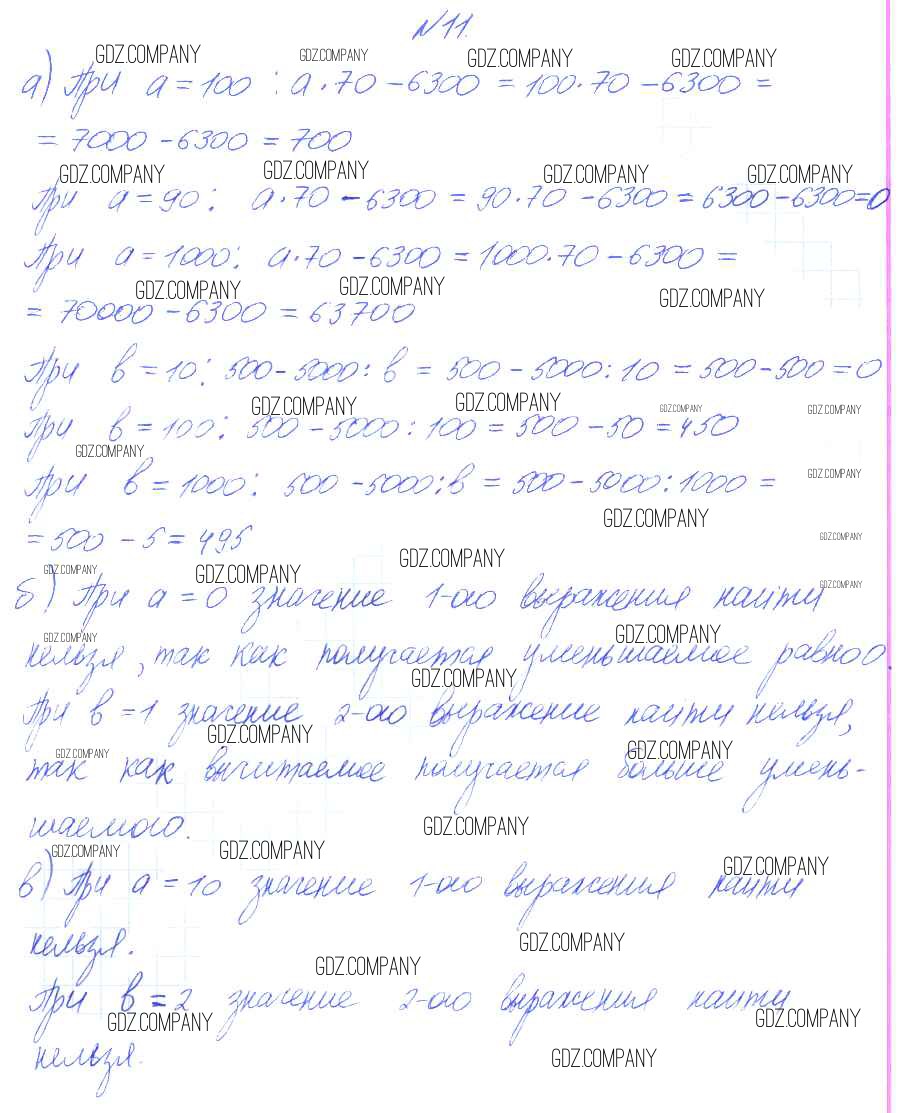 №11.
GDZ.COMPANY GDZ.COMPANY GDZ.COMPANY GDZ.COMPANY
а) При а = 100 : а · 70 – 6300 = 100 · 70 – 6300 =
= 7000 – 6300 = 700
GDZ.COMPANY GDZ.COMPANY GDZ.COMPANY GDZ.COMPANY
При а = 90 : а · 70 – 6300 = 90 · 70 – 6300 = 6300 – 6300 = 0
При а = 1000 : а · 70 – 6300 = 1000 · 70 – 6300 =
GDZ.COMPANY GDZ.COMPANY GDZ.COMPANY
= 70000 – 6300 = 63700
При в = 10 : 500 – 5000 : в = 500 – 5000 : 10 = 500 – 500 = 0
GDZ.COMPANY GDZ.COMPANY GDZ.COMPANY GDZ.COMPANY
При в = 100 : 500 – 5000 : 100 = 500 – 50 = 450
GDZ.COMPANY GDZ.COMPANY
При в = 1000 : 500 – 5000 : в = 500 – 5000 : 1000 =
GDZ.COMPANY GDZ.COMPANY
= 500 – 5 = 495
GDZ.COMPANY GDZ.COMPANY GDZ.COMPANY GDZ.COMPANY
б) При а = 0 значение 1-ого выражения найти
GDZ.COMPANY GDZ.COMPANY
нельзя, так как получается уменьшаемое равно 0.
GDZ.COMPANY
При в = 1 значение 2-ого выражение найти нельзя,
GDZ.COMPANY GDZ.COMPANY GDZ.COMPANY
так как вычитаемое получается больше умень-
GDZ.COMPANY
шаемого.
GDZ.COMPANY GDZ.COMPANY GDZ.COMPANY
в) При а = 10 значение 1-ого выражения найти
GDZ.COMPANY
нельзя.
GDZ.COMPANY
При в = 2 значение 2-ого выражения найти
GDZ.COMPANY GDZ.COMPANY
нельзя.
GDZ.COMPANY